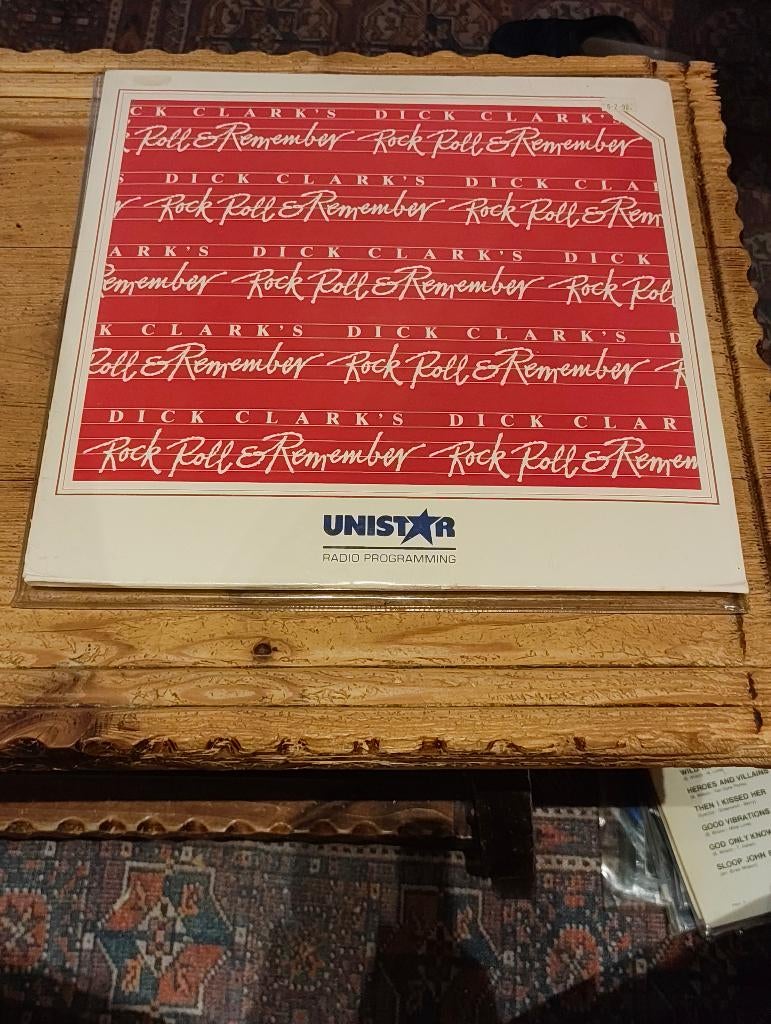 CK CLARK'S DICK CLARK'S
Roll & Remember Rock Roll & Remember
S DICK CLARK'S DICK CLA
Rock Roll & Remember Rock Roll & Rem
ARK'S DICK CLARK'S DICK
emember Rock Roll & Remember Rock Roll
K CLARK'S DICK CLARK'S D
Roll & Remember Rock Roll & Remember R
DICK CLARK'S DICK CLAR
Rock Roll & Remember Rock Roll & Remem
UNISTAR
RADIO PROGRAMMING
HEROES AND VILLAINS
THEN I KISSED HER
GOOD VIBRATIONS
GOD ONLY KNOW
SLOOP JOHN B